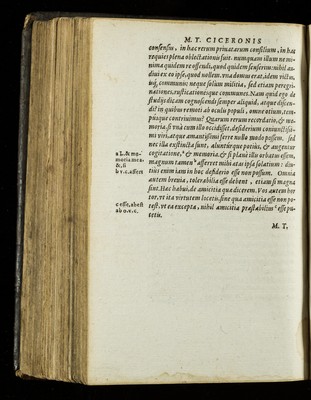 M. T. CICERONIS
consensus, in hac rerum priuatarum consilium, in hac
requies plena oblectationis fuit. nunquam illum ne mi-
nima quidem re offendi, quod quidem senserim: nihil au-
diui ex eo ipse, quod nollem. vna domus erat, idem victus,
isq́; communis: neque solum militia, sed etiam peregri-
nationes, rusticationesque communes. Nam quid ego de
studijs dicam cognoscendi semper aliquid, atque discen-
di? in quibus remoti ab oculis populi, omne otium, tem-
púsque contriuimus? Quarum rerum recordatio, & me-
moria si vnà cum illo occidisset, desiderium coniunctissi-
mi viri, atque amantissimi ferre nullo modo possem. sed
nec illa exstincta sunt, alunturque potius, & augentur
a L. & me-
moria mea
&, si
cogitatione, a & memoria, & si planè illis orbatus essem,
b v. c. affert
magnum tamen b afferret mihi aetas ipsa solatium: diu-
tius enim iam in hoc desiderio esse non possum. Omnia
autem breuia, tolerabilia esse debent, etiam si magna
sint. Haec habui, de amicitia quae dicerem. Vos autem hor
tor, vt ita virtutem locetis, sine qua amicitia esse non po-
c esse, abest
ab o. v. c.
test, vt ea excepta, nihil amicitia praestabilius c esse pu-
tetis.
M. T.